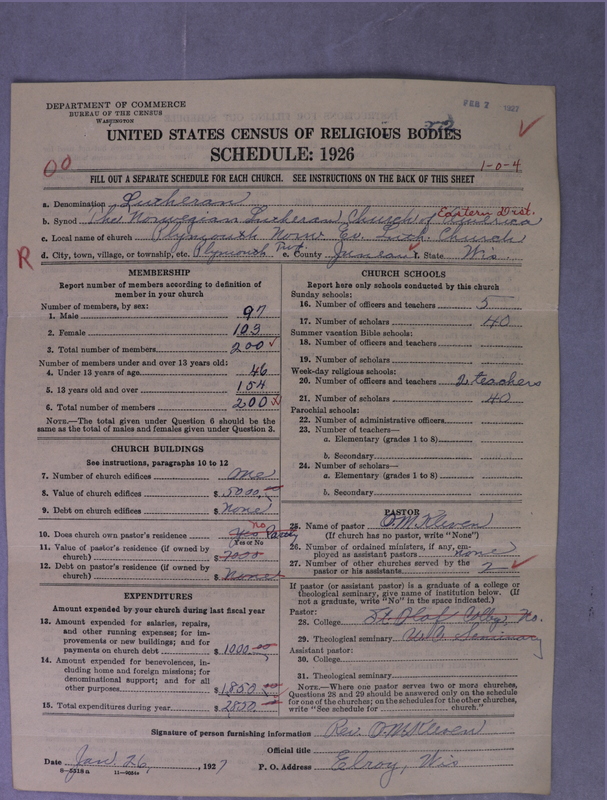 DEPARTMENT OF COMMERCE
BUREAU OF THE CENSUS
WASHINGTON
FEB 2 1927
UNITED STATES CENSUS OF RELIGIOUS BODIES
SCHEDULE: 1926
00
1-0-4
FILL OUT A SEPARATE SCHEDULE FOR EACH CHURCH. SEE INSTRUCTIONS ON THE BACK OF THIS SHEET
a. Denomination Lutheran
b. Synod The Norwegian Lutheran Church of America Eastern Dist.
c. Local name of church Plymouth Norw. Ev. Luth. Church
R d. City, town, village, or township, etc. Plymouth e. County Juneau f. State Wis.
MEMBERSHIP
Report number of members according to definition of
member in your church
Number of members, by sex:
1. Male 97
2. Female 103
3. Total number of members 200
Number of members under and over 13 years old:
4. Under 13 years of age 46
5. 13 years old and over 154
6. Total number of members 200
NOTE.—The total given under Question 6 should be
the same as the total of males and females given under Question 3.
CHURCH BUILDINGS
See instructions, paragraphs 10 to 12
7. Number of church edifices one
8. Value of church edifices $ 5000.00
9. Debt on church edifices $ None
10. Does church own pastor's residence Yes Partly no
(Yes or No
11. Value of pastor's residence (if owned by
church) $ 7000
12. Debt on pastor's residence (if owned by
church) $ None
EXPENDITURES
Amount expended by your church during last fiscal year
13. Amount expended for salaries, repairs,
and other running expenses; for im-
provements or new buildings; and for
payments on church debt $ 1000.00
14. Amount expended for benevolences, in-
cluding home and foreign missions; for
denominational support; and for all
other purposes $ 1850.00
15. Total expenditures during year $ 2850.00
CHURCH SCHOOLS
Report here only schools conducted by this church
Sunday schools:
16. Number of officers and teachers 5
17. Number of scholars 40
Summer vacation Bible schools:
18. Number of officers and teachers
19. Number of scholars
Week-day religious schools:
20. Number of officers and teachers 2 teachers
21. Number of scholars 40
Parochial schools:
22. Number of administrative officers
23. Number of teachers—
a. Elementary (grades 1 to 8)
b. Secondary
24. Number of scholars—
a. Elementary (grades 1 to 8)
b. Secondary
PASTOR
25. Name of pastor O.M. Kleven
(If church has no pastor, write "None")
26. Number of ordained ministers, if any, em-
ployed as assistant pastors none
27. Number of other churches served by the
pastor or his assistants 2
If pastor (or assistant pastor) is a graduate of a college or
theological seminary, give name of institution below. (If
not a graduate, write "No" in the space indicated.)
Pastor:
28. College St. Olaf
29. Theological seminary U.C. Seminary
Assistant pastor:
30. College
31. Theological seminary
NOTE.—Where one pastor serves two or more churches,
Questions 28 and 29 should be answered only on the schedule
for one of the churches; on the schedules for the other churches,
write "See schedule for church."
Signature of person furnishing information Rev. O.M. Kleven
Official title
Date Jan. 26, , 1927 P. O. Address Elroy, Wis
8-5318a